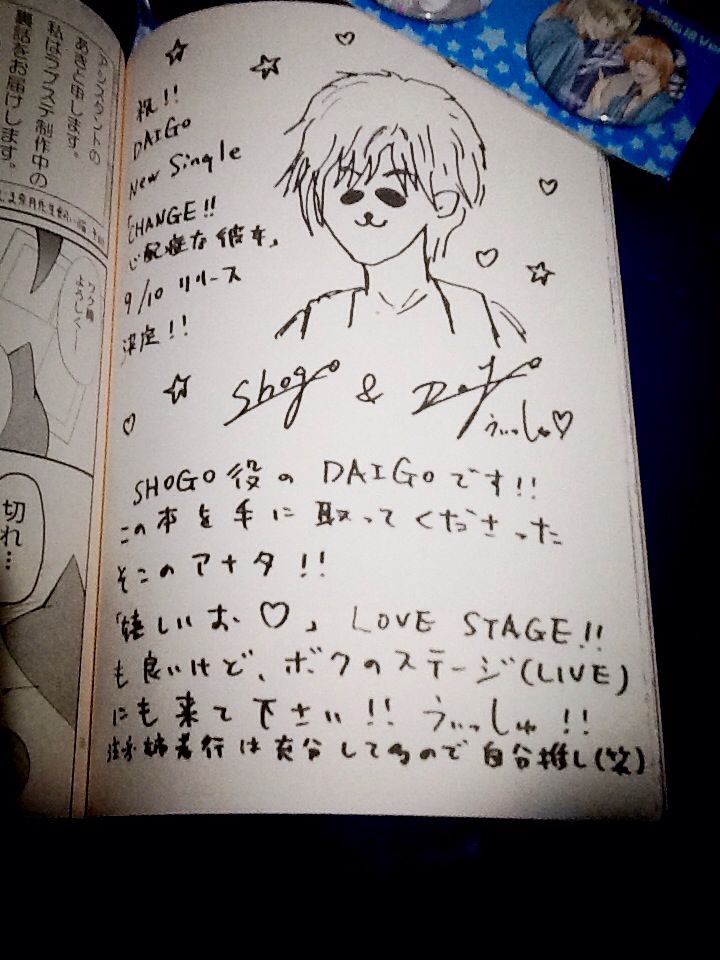 アシスタントの
あきと申します。
私はラブステ制作中の
裏話をお届けします。
よろしくー
切れ…
祝!!
DAIGO
New Single
「CHANGE!!
心配症な彼女」
9/10 リリース
決定!!
Shogo & Daigo
うぃっしゅ♡
SHOGO役の DAIGOです!!
この本を手に取ってくださった
そこのアナタ!!
「嬉しいお♡」 LOVE STAGE!!
も良いけど、ボクのステージ(LIVE)
にも来て下さい!! うぃっしゅ!!
は充分してるので自分推し(笑)